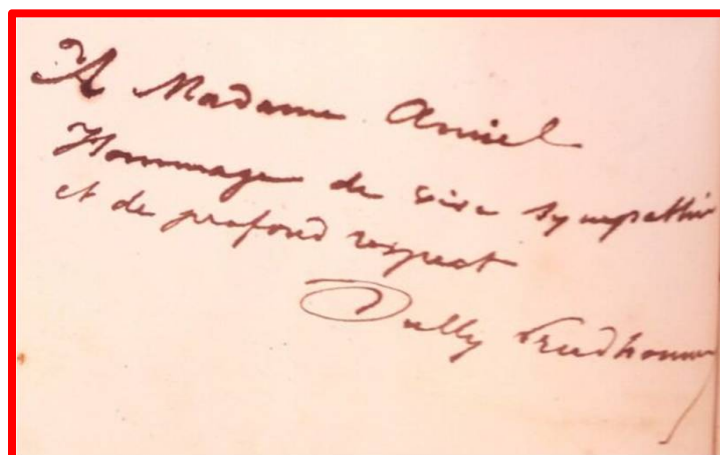 A Madame Amiel
Hommage de vive sympathie
et de profond respect
Sully Prudhomme